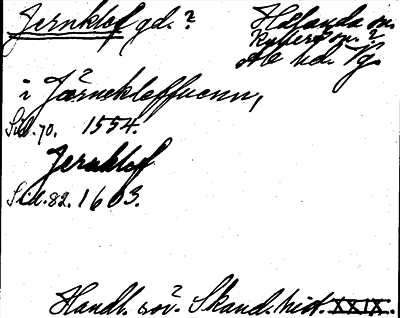 Jernklof gd. ?
Hålanda sn.
Ryssers sn. ?
Ale hd. Vg.
i Järnekloffuenn,
Sid. 70. 1554.
Jernklof
Sid. 82. 1603.
Handl. rör. Skand. hist. XXIX.